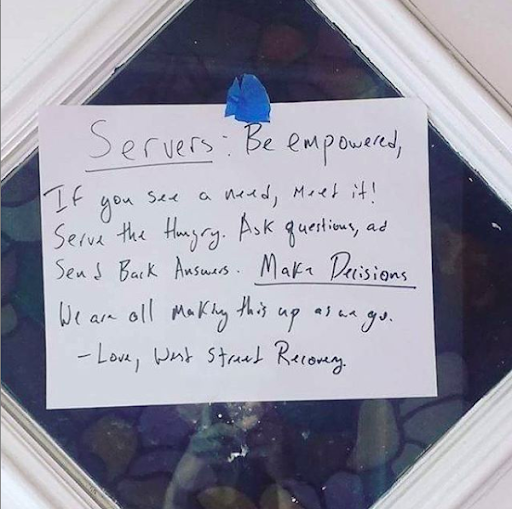 Servers: Be empowered,
If you see a need, meet it!
Serve the Hungry. Ask questions, ad
Send Back Answers. Make Decisions
We are all making this up as we go.
- Love, West Street Recovery.